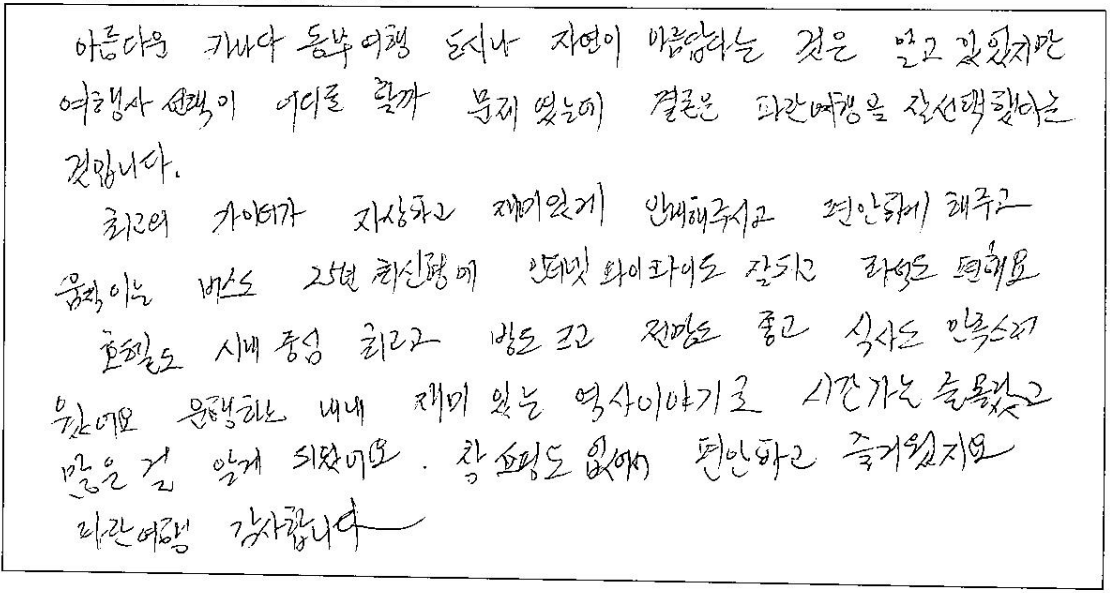 아름다운 카나다 동부여행 도시나 자연이 아름답다는 것은 알고 있었지만
여행사 선택이 어디를 할까 문제였는데 결론은 파란여행을 잘선택했다는
것입니다.
최고의 가이더가 자상하고 재미있게 안내해주시고 편안하게 해주고
움직이는 버스도 25년 최신형에 인터넷 와이파이도 잘되고 좌석도 편해요
호텔도 시내 중심 최고고 방도 크고 전망도 좋고 식사도 만족스러
웠어요 운행하는 내내 재미 있는 역사이야기로 시간가는 줄 몰랐고
많은 걸 알게 되었어요. 참 쇼핑도 없어서 편안하고 즐거웠지요
파란여행 감사합니다